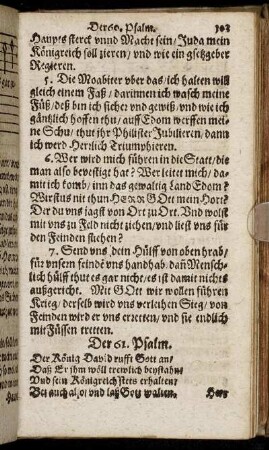 Der 60. Psalm. 103
Haupts sterck vnnd Macht sein / Juda mein
Königreich soll zieren / vnd wie ein gsetzgeber
Regieren.
5. Die Moabiter vber das / ich halten will
gleich einem Faß / darinnen ich wasch meine
Füß / deß bin ich sicher vnd gewiß / vnd wie ich
gäntzlich hoffen thu / auff Edom werffen mei-
ne Schu / thut ihr Philister Jubilieren / dann
ich werd Herrlich Triumphieren.
6. Wer wird mich führen in die Statt / die
man also bevestigt hat? Wer leitet mich / da-
mit ich komb / inn das gewaltig Land Edom?
Wirstus nit thun HERR GOtt mein Hort?
Der du vns jagst von Ort zu Ort. Vnd wolst
mit vns zu Feld nicht ziehen / vnd liest vns für
den Feinden fliehen?
7. Send vns dein Hülff von oben hrab /
für vnsern feinde vns handhab. dañ Mensch-
lich hülff thut es gar nicht / es ist damit nichts
außgericht. Mit GOtt wir wollen führen
Krieg / derselb wird vns verleihen Sieg / von
Feinden wird er vns erretten / vnd sie endlich
mit Füssen tretten.
Der 61. Psalm.
Der König David rufft Gott an /
Daß Er jhm wöll trewlich beystahn /
Vnd sein Königreich stets erhalten /
Bet auch also / vnd laß Gott walten.